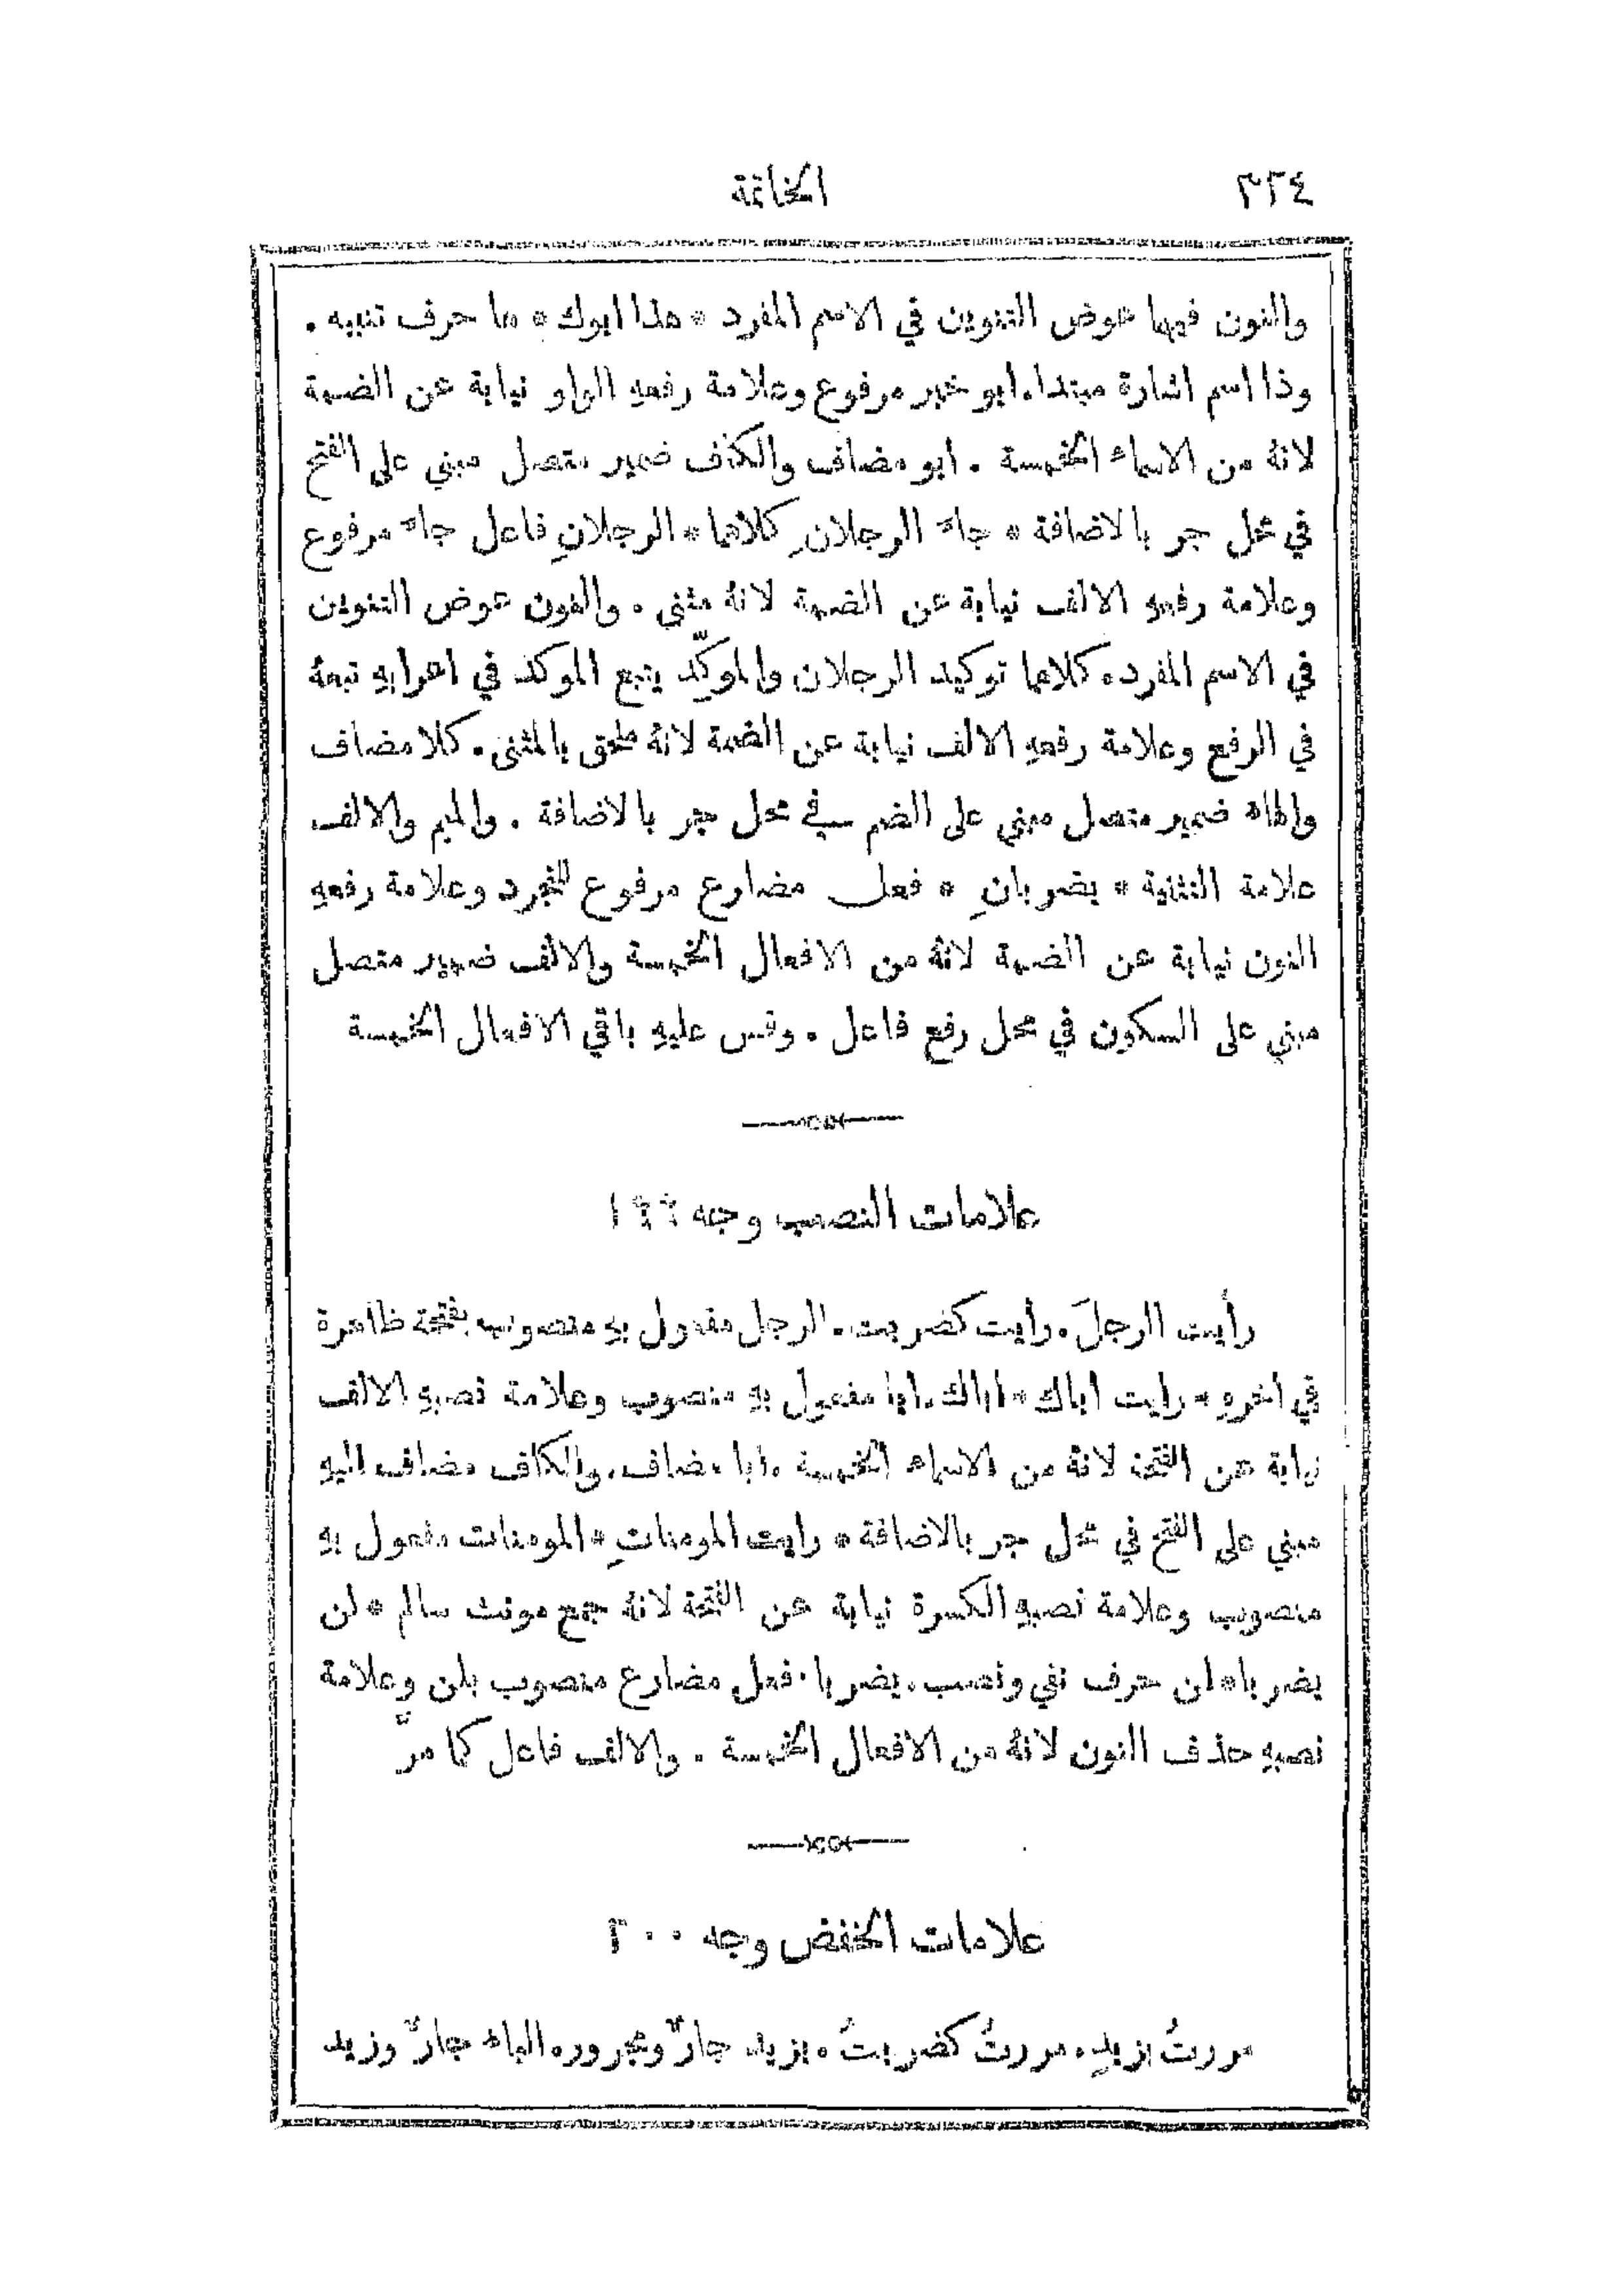 ٣٢٤ الخاتمة
والنون فيهما عوض التنوين في الاسم المفرد * هذا ابوك * ها حرف تنبيه .
وذا اسم اشارة مبتدا. ابو خبر مرفوع وعلامة رفعهِ الواو نيابة عن الضمة
لانهُ من الاسماء الخمسة . ابو مضاف والكاف ضمير متصل مبني على الفتح
في محل جر بالاضافة * جاء الرجلانِ كلاهما * الرجلانِ فاعل جاء مرفوع
وعلامة رفعهِ الالف نيابة عن الضمة لانهُ مثنى . والنون عوض التنوين
في الاسم المفرد. كلاهما توكيد الرجلان والموكِّد يتبع الموكد في اعرابهِ تبعهُ
في الرفع وعلامة رفعهِ الالف نيابة عن الضمة لانهُ ملحق بالمثنى. كلا مضاف
والهاء ضمير متصل مبني على الضم في محل جر بالاضافة . والميم والالف
علامة التثنية * يضربانِ * فعل مضارع مرفوع للتجرد وعلامة رفعهِ
النون نيابة عن الضمة لانهُ من الافعال الخمسة والالف ضمير متصل
مبني على السكون في محل رفع فاعل . وقس عليهِ باقي الافعال الخمسة
علامات النصب وجه ١٩٩
رأيت الرجلَ. رأيت كضربت. الرجل مفعول بهِ منصوب بفتحة ظاهرة
في آخرهِ * رايت اباك * اباك. ابا مفعول بهِ منصوب وعلامة نصبهِ الالف
نيابة عن الفتحة لانهُ من الاسماء الخمسة .ابا مضاف. والكاف مضاف اليهِ
مبني على الفتح في محل جر بالاضافة * رايت المومناتِ * المومنات مفعول بهِ
منصوب وعلامة نصبهِ الكسرة نيابة عن الفتحة لانهُ جمع مونث سالم * لن
يضربا * لن حرف نفي ونصب. يضربا. فعل مضارع منصوب بلن وعلامة
نصبهِ حذف النون لانهُ من الافعال الخمسة . والالف فاعل كما مرَّ
علامات الخفض وجه ٢٠٠
مررتُ بزيدٍ. مررتُ كضربتُ . بزيد جارٌّ ومجرور. الباء جارٌّ وزيد